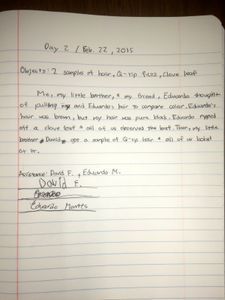 Day 2 / Feb. 22, 2015
Objects: 2 samples of hair, Q-tip fuzz, clove leaf
Me, my little brother, & my friend, Eduardo thought
of pulling my and Eduardo's hair to compare color. Eduardo's
hair was brown, but my hair was pure black. Eduardo ripped
off a clove leaf & all of us observed the leaf. Then, my little
brother, David, got a sample of Q-tip hair & all of us looked
at it.
Assistance: David F., Eduardo M.
David F.
Eduardo Montes